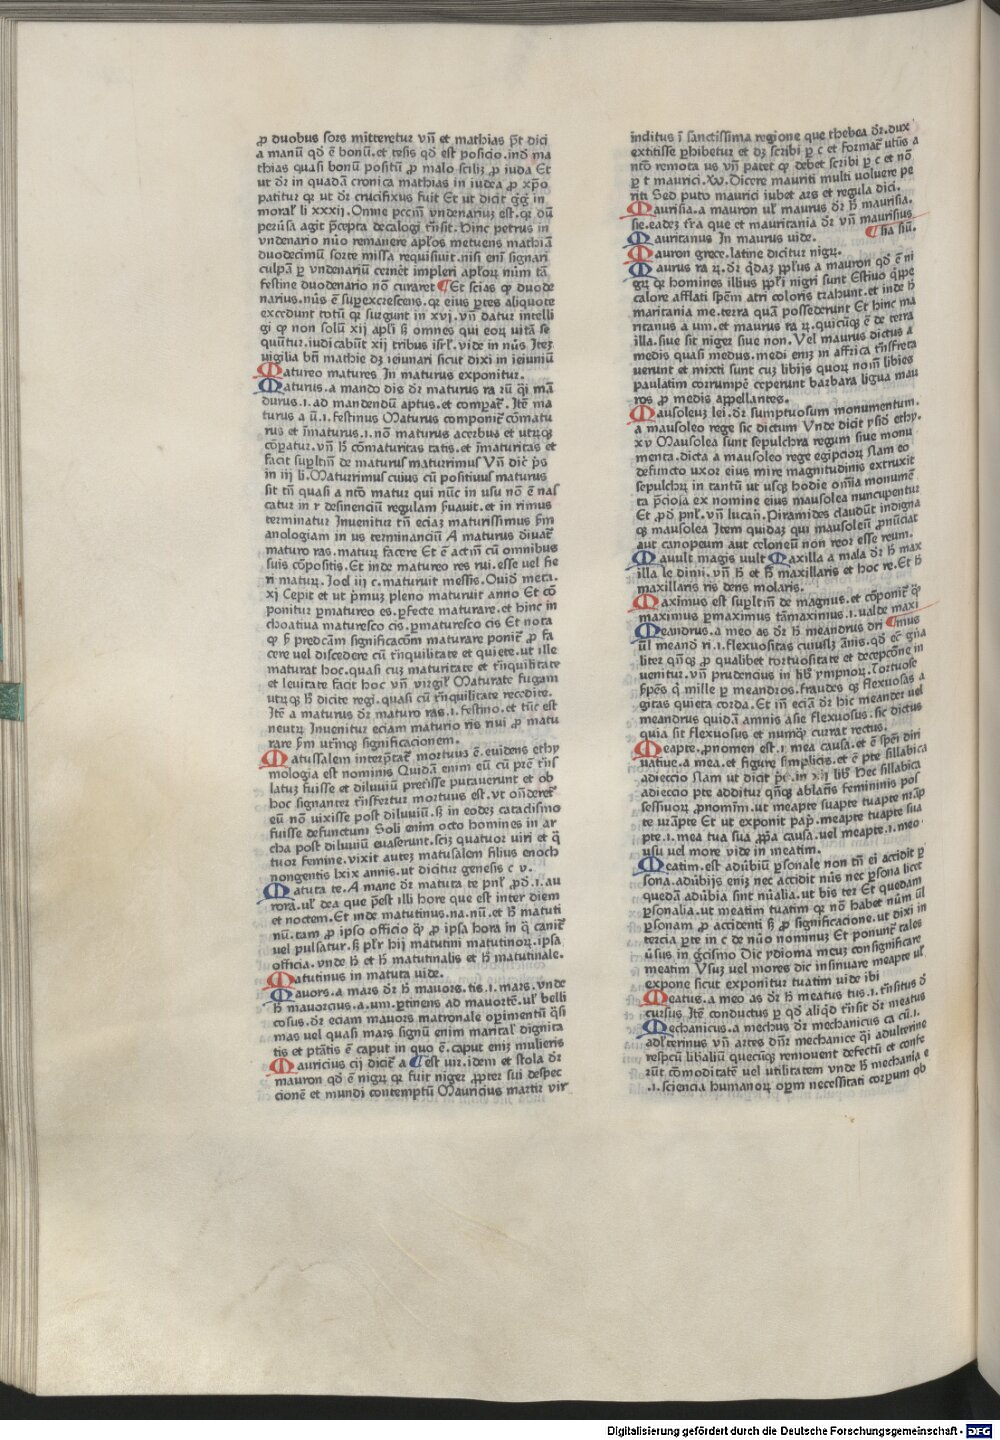 ꝓ duobus sors mitteretur vn̄ et mathias p̄t dici
a manū qđ ē bonū.et tesis qđ est posicio.inđ ma
thias quasi bonū positū ꝓ malo scilꝫ ꝓ iuda Et
ut dr̄ in quadā cronica mathias in iudea ꝓ xp̄o
patitur qꝛ ut dr̄ crucifixus fuit Et ut dicit g̅g̅ in
moral̛ li xxxij. Omne pccm̄ vndenariuꝫ est.qꝛ dū
peruſa agit p̄cepta decalogi tn̄sit. hinc petrus in
vndenario nūo remanere apl̄os metuens mathiā
duodecimū sorte missa requisiuit.nisi enī signari
culpā ꝑ vndenariū cernēt impleri apl̄oꝝ nūm tā
festine duodenario nō curaret Et scias ꝙ duode
narius.nūs ē suꝑexcrescens.qꝛ eius ꝑtes aliquote
excedunt totū qꝛ surgunt in xvj.vn̄ datur intelli
gi ꝙ non solū xij apl̄i sꝫ omnes qui eoꝝ uitā se
quūtur.iudicabūt xij tribus isrl̄.vide in nūs Iteꝫ
uigilia bn̄ mathie dꝫ ieiunari sicut dixi in ieiuniū
Matureo matures In maturus exponitur.
Maturus.a mando dis dr̄ maturus ra rū q̄i mā
durus.i.ad mandendū aptus.et compat̄. Itē ma
turus a ū.i.festinus Maturus componit̄ cōmatu
rus et īmaturus.i.nō maturus acerbus et utrūqꝫ
cōꝑatur.vn̄ ħ cōmaturitas tatis.et īmaturitas et
facit suꝑltm̄ de maturus maturrimus Vn̄ dic̄ p̄s
in iij li.Maturrimus cuius cū positiuus maturus
sit tn̄ quasi a nt̄o matur qui nūc in usu nō ē nas
catur in r desinenciū regulam ẜuauit.et in rimus
terminatur Inuenitur tn̄ eciaꝫ maturissimus ẜm
anologiam in us terminanciū A maturus diuat̄
maturo ras.matuꝝ facere Et ē actm̄ cū omnibus
suis cōpositis.Et inde matureo res rui.esse uel fie
ri matuꝝ.Joel iij c.maturuit messis.Ouid meta.
xj Cepit et ut ṗmuꝫ pleno maturuit anno Et cō
ponitur ꝑmatureo es.ꝑfecte maturare.et hinc in
choatiua maturesco cis.ꝑmaturesco cis Et nota
ꝙ ẜ predcām significacōm maturare ponit̄ ꝓ fa
cere uel discedere cū tn̄quilitate et quiete.ut ille
maturat hoc.quasi cuꝫ maturitate et tn̄quilitate
et leuitate facit hoc vn̄ virgil̛ Maturate fugam
utrūqꝫ ħ dicite regi.quasi cū tn̄quilitate recedite.
Itē a maturus dr̄ maturo ras.i.festino.et tūc est
neutꝝ Inuenitur eciam maturio ris riui ꝓ matu
rare ẜm utrāqꝫ significacionem.
Matussalem interp̄tat̄ mortuus ē.euidens ethy
mologia est nominis Quidā enim eū cū pr̄e tn̄s
latuꝫ fuisse et diluuiū preterisse putauerunt et ob
hoc signanter tn̄sfertur mortuus est.vt on̄deret̄
eū nō uixisse post diluuiū.sꝫ in eodeꝫ cataclismo
fuisse defunctum Soli enim octo homines in ar
cha post diluuiū euaserunt.sciꝫ quatuor uiri et q̄
tuor femine.vixit auteꝫ matusalem filius enoch
nongentis lxix annis.ut dicitur genesis c v.
Matuta te.A mane dr̄ matuta te pnl̄t ꝓđ.i.au
rora.ul̛ dea que p̄est illi hore que est inter diem
et noctem.Et inde matutinus.na.nū.et ħ matuti
nū.tam ꝓ ipso officio q̄ ꝓ ipsa hora in q̄ canit̄
uel pulsatur.sꝫ pl̄r hij matutini matutinoꝝ.ipsa
officia.vnde ħ et ħ matutinalis et ħ matutinale.
Matutinus in matuta uide.
Mauors.a mars dr̄ ħ mauors.tis.i.mars.vnde
ħ mauorcius.a.um.ꝑtinens ad mauortē.ul̛ belli
cosus.dr̄ eciam mauors matronale oꝑimentū q̄si
mas uel quasi mars signū enim marital̛ dignita
tis et ptātis ē caput in quo ē.caput eniꝫ mulieris
Mauricius cij dicit̄ a est uir.idem et stola dr̄
mauron qđ ē nigꝝ qꝛ fuit niger ꝓpter sui despec
cionē et mundi contemptū Mauricius martir vir
inditus ī sanctissima regione que thebea dr̄.dux
extitisse ꝑhibetur et dꝫ scribi ꝑ c et format̄ utiūs a
nt̄o remota us vn̄ patet ꝙ debet scribi ꝑ c et nō
ꝑ t maurici.Xv.Dicere mauriti multi uoluere pe
riti Sed puto maurici iubet ars et regula dici.
Maurisia.a mauron ul̛ maurus dr̄ ħ maurisia.
sie.eadeꝫ tr̄a que et mauritania dr̄ vn̄ maurisius.
Mauritanus In maurus uide. sia siū.
Mauron grece.latine dicitur nigꝝ.
Maurus ra ꝝ.dr̄ q̄daꝫ ppl̄us a mauron qđ ē ni
gꝝ qꝛ homines illius ppl̄i nigri sunt Estiuo q̄ppe
calore afflati spēm atri coloris trahunt.et inde ħ
maritania me.terra quā possederunt Et hinc ma
ritanus a um.et maurus ra ꝝ.quicūqꝫ ē de terra
illa.siue sit niger siue non.Vel maurus dictus a
medis quasi medus.medi eniꝫ in affrica tn̄sfreta
uerunt et mixti sunt cuꝫ libijs quoꝝ nom̄ libies
paulatim corrumpē ceperunt barbara ligua mau
ros ꝓ medis appellantes.
Mausoleuꝫ lei.dr̄ sumptuosum monumentum.
a mausoleo rege sic dictum Vnde dicit ysid ethy.
xv Mausolea sunt sepulchra regum siue monu
menta.dicta a mausoleo rege egipcioꝝ Nam eo
defuncto uxor eius mire magnitudinis extruxit
sepulchꝝ in tantū ut usqꝫ hodie om̄ia monumē
ta p̄ciosa ex nomine eius mausolea nuncupentur
Et ꝓđ pnl̄t.vn̄ lucan̄.Piramides claudūt indigna
qꝫ mausolea Item quidaꝫ qui mausoleū ꝓnūciat
aut canopeum aut coloneū non reor esse reum.
Mauult magis uult Maxilla a mala dr̄ ħ max
illa le dinū.vn̄ ħ et ħ maxillaris et hoc re.Et ħ
maxillaris ris dens molaris.
Maximus est suꝑltm̄ de magnus.et cōponit̄ q̄
maximus ꝑmaximus tāmaximus.i.ualde maxi
Meandrus.a meo as dr̄ ħ meandrus dri mus
ūl meanđ ri.i.flexuositas cuiuslꝫ ānis.qđ ec̄ gn̄a
liter qn̄qꝫ ꝓ qualibet tortuositate et decepcōne in
uenitur.vn̄ prudencius in lib̄ ympnoꝝ.Tortuose
ẜpēs q̄ mille ꝑ meandros.fraudes qꝫ flexuosas a
gitas quieta corda.Et in̄ eciā dr̄ hic meander uel
meandrus quidā amnis asie flexuosus.sic dictus
quia sit flexuosus et numqͣ curat rectus.
Meapte.ꝓnomen est.i mea causa.et ē spēi diri
uatiue.a mea.et figure simplicis.et ē pte sillabica
adieccio Nam ut dicit p̄c.in xij lib̄ Hec sillabica
adieccio pte additur qn̄qꝫ ablatīs femininis pos
sessiuoꝝ ꝓnoīm.ut meapte suapte tuapte nr̄āp
te ur̄āpte Et ut exponit pap̄.meapte tuapte sua
pte.i.mea tua sua ꝓpa causa.uel meapte.i.meo
usu uel more vide in meatim.
Meatim.est adūbiū ꝑsonale non tn̄ ei accidit ꝑ
sona.adūbijs eniꝫ nec accidit nūs nec ꝑsona licet
quedā adūbia sint nūalia.ut bis ter Et quedam
ꝑsonalia.ut meatim tuatim qꝛ nō habet nūm ūl
ꝑsonam ꝓ accidenti sꝫ ꝓ significacione.ut dixi in
tercia ꝑte in c de nūo nominuꝫ Et ponunt̄ tales
ūsus in g̅cismo Dic ydioma meuꝫ consignificare
meatim Vsuꝫ uel mores dic insinuare meapte ul̛
expone sicut exponitur tuatim uide ibi
Meatus.a meo as dr̄ ħ meatus tus.i.tn̄situs đ
cursus Itē conductus ꝑ qđ aliqđ tn̄sit dr̄ meatus
Mechanicus.a mechus dr̄ mechanicus ca cū.i.
adl̛terinus vn̄ artes dn̄r mechanice q̄i adulterine
resp̄cū libaliū quecūqꝫ remouent defectū et confe
rūt cōmoditatē uel utilitatem vnde ħ mechania e
.i.sciencia humanoꝝ oꝑm necessitati corꝑum ob
Digitalisierung gefördert durch die Deutsche Forschungsgemeinschaft - DFG